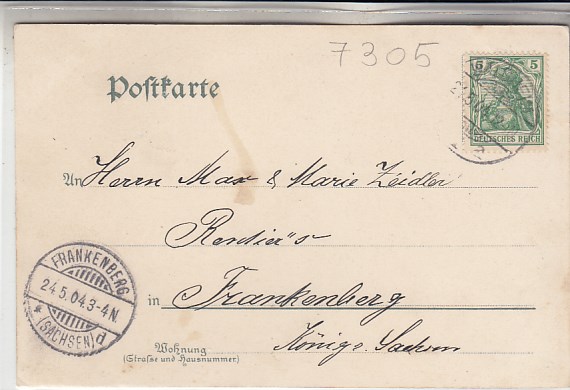 7305
Postkarte
5 5
DEUTSCHES REICH
An Herrn Max & Marie Zeidler
Rentier's
in Frankenberg
Wohnung
(Straße und Hausnummer)
Königr. Sachsen
FRANKENBERG
24.5.04.3-4N.
* (SACHSEN) d